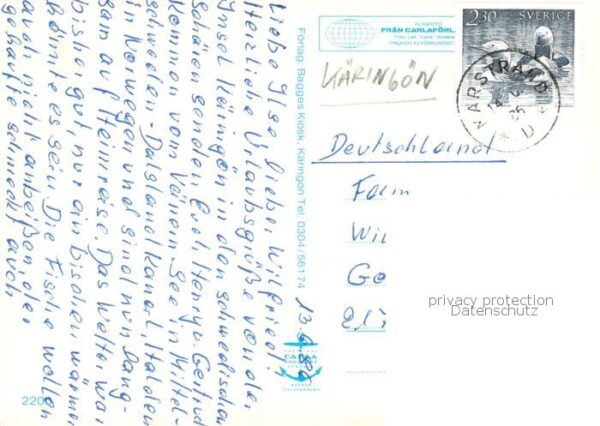 Liebe Ilse, lieber Wilfried,
herzliche Urlaubsgrüße von der
Insel Käringön in den schwedischen
Schären senden Euch Henry u. Gertrud
Kommen vom Vänern-See in Mittel-
schweden - Dalslandkanal, Halden
in Norwegen und sind nun lang-
sam auf Heimreise. Das Wetter war
bisher gut, nur ein bischen wärmer
könnte es sein. Die Fische wollen
auch nicht anbeißen, der
gekaufte schmeckt auch
13.6.86
2200
Förlag: Bagges Kiosk, Käringön Tel. 0304/56174
FLYGFOTO
FRÅN CARLAFÖRL.
FRIGIVEN AV FÖRSVARSST.
CARLA
KÄRINGÖN
2.30 SVERIGE
MARSTRAND
Deutschland
Fam
Wil
Ge
217
privacy protection
Datenschutz